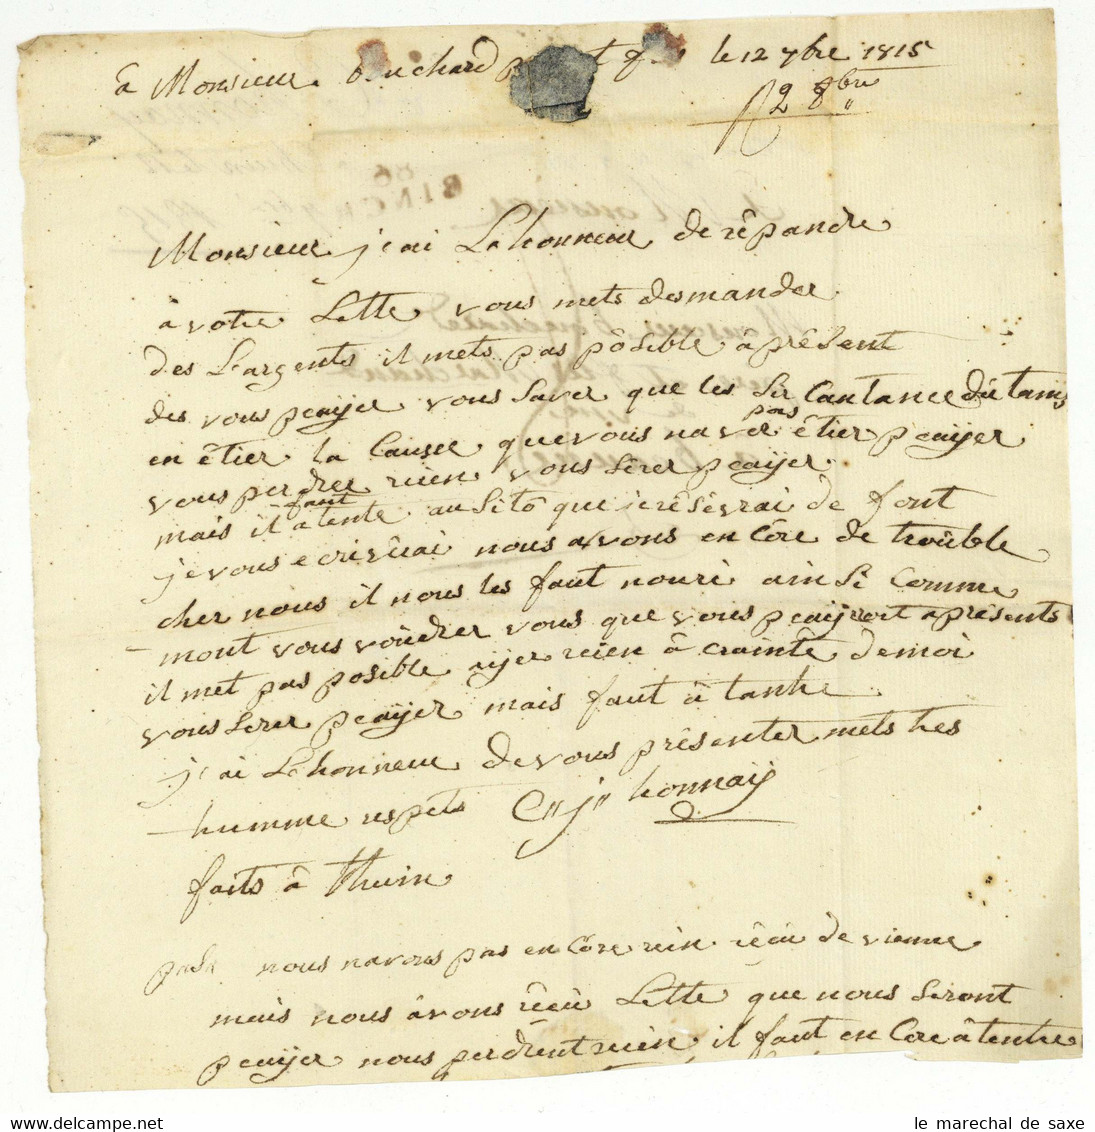 à Monsieur Bouchard le 12 7bre 1815
R 2 8bre
86
BINCH
Monsieur j'ai Lehonneur derêpandre
à votre Lettre vous mets desmander
des L'argents il mets pas pôsible â présent
des vous peayer vous saver que les Sir Cantance dûe tams
en êtier la Causse quevous naver pas êtier peayer
vous perdrer rien vous serer peayer
mais il faut atente ausitô que je rêsevrai de font
je vous ecriverai nous avons en Côre de troûble
cher nous il nous les faut nouri ainsi comme
mont vous voûdrer vous que vous peayeroit aprésents
il met pas posible ayer rien â crainte demoi
vous serer peayer mais faut â tante
j'ai Lehonneur devous présenter mets tres
humme respets C"j" honnay
faits â thuin
nous navons pas en Côre rien rêçû de vienne
mais nous âvons rêçû Lette que nous seront
peayer nous perdrent rien il faut en Core âtentre
le marechal de saxe